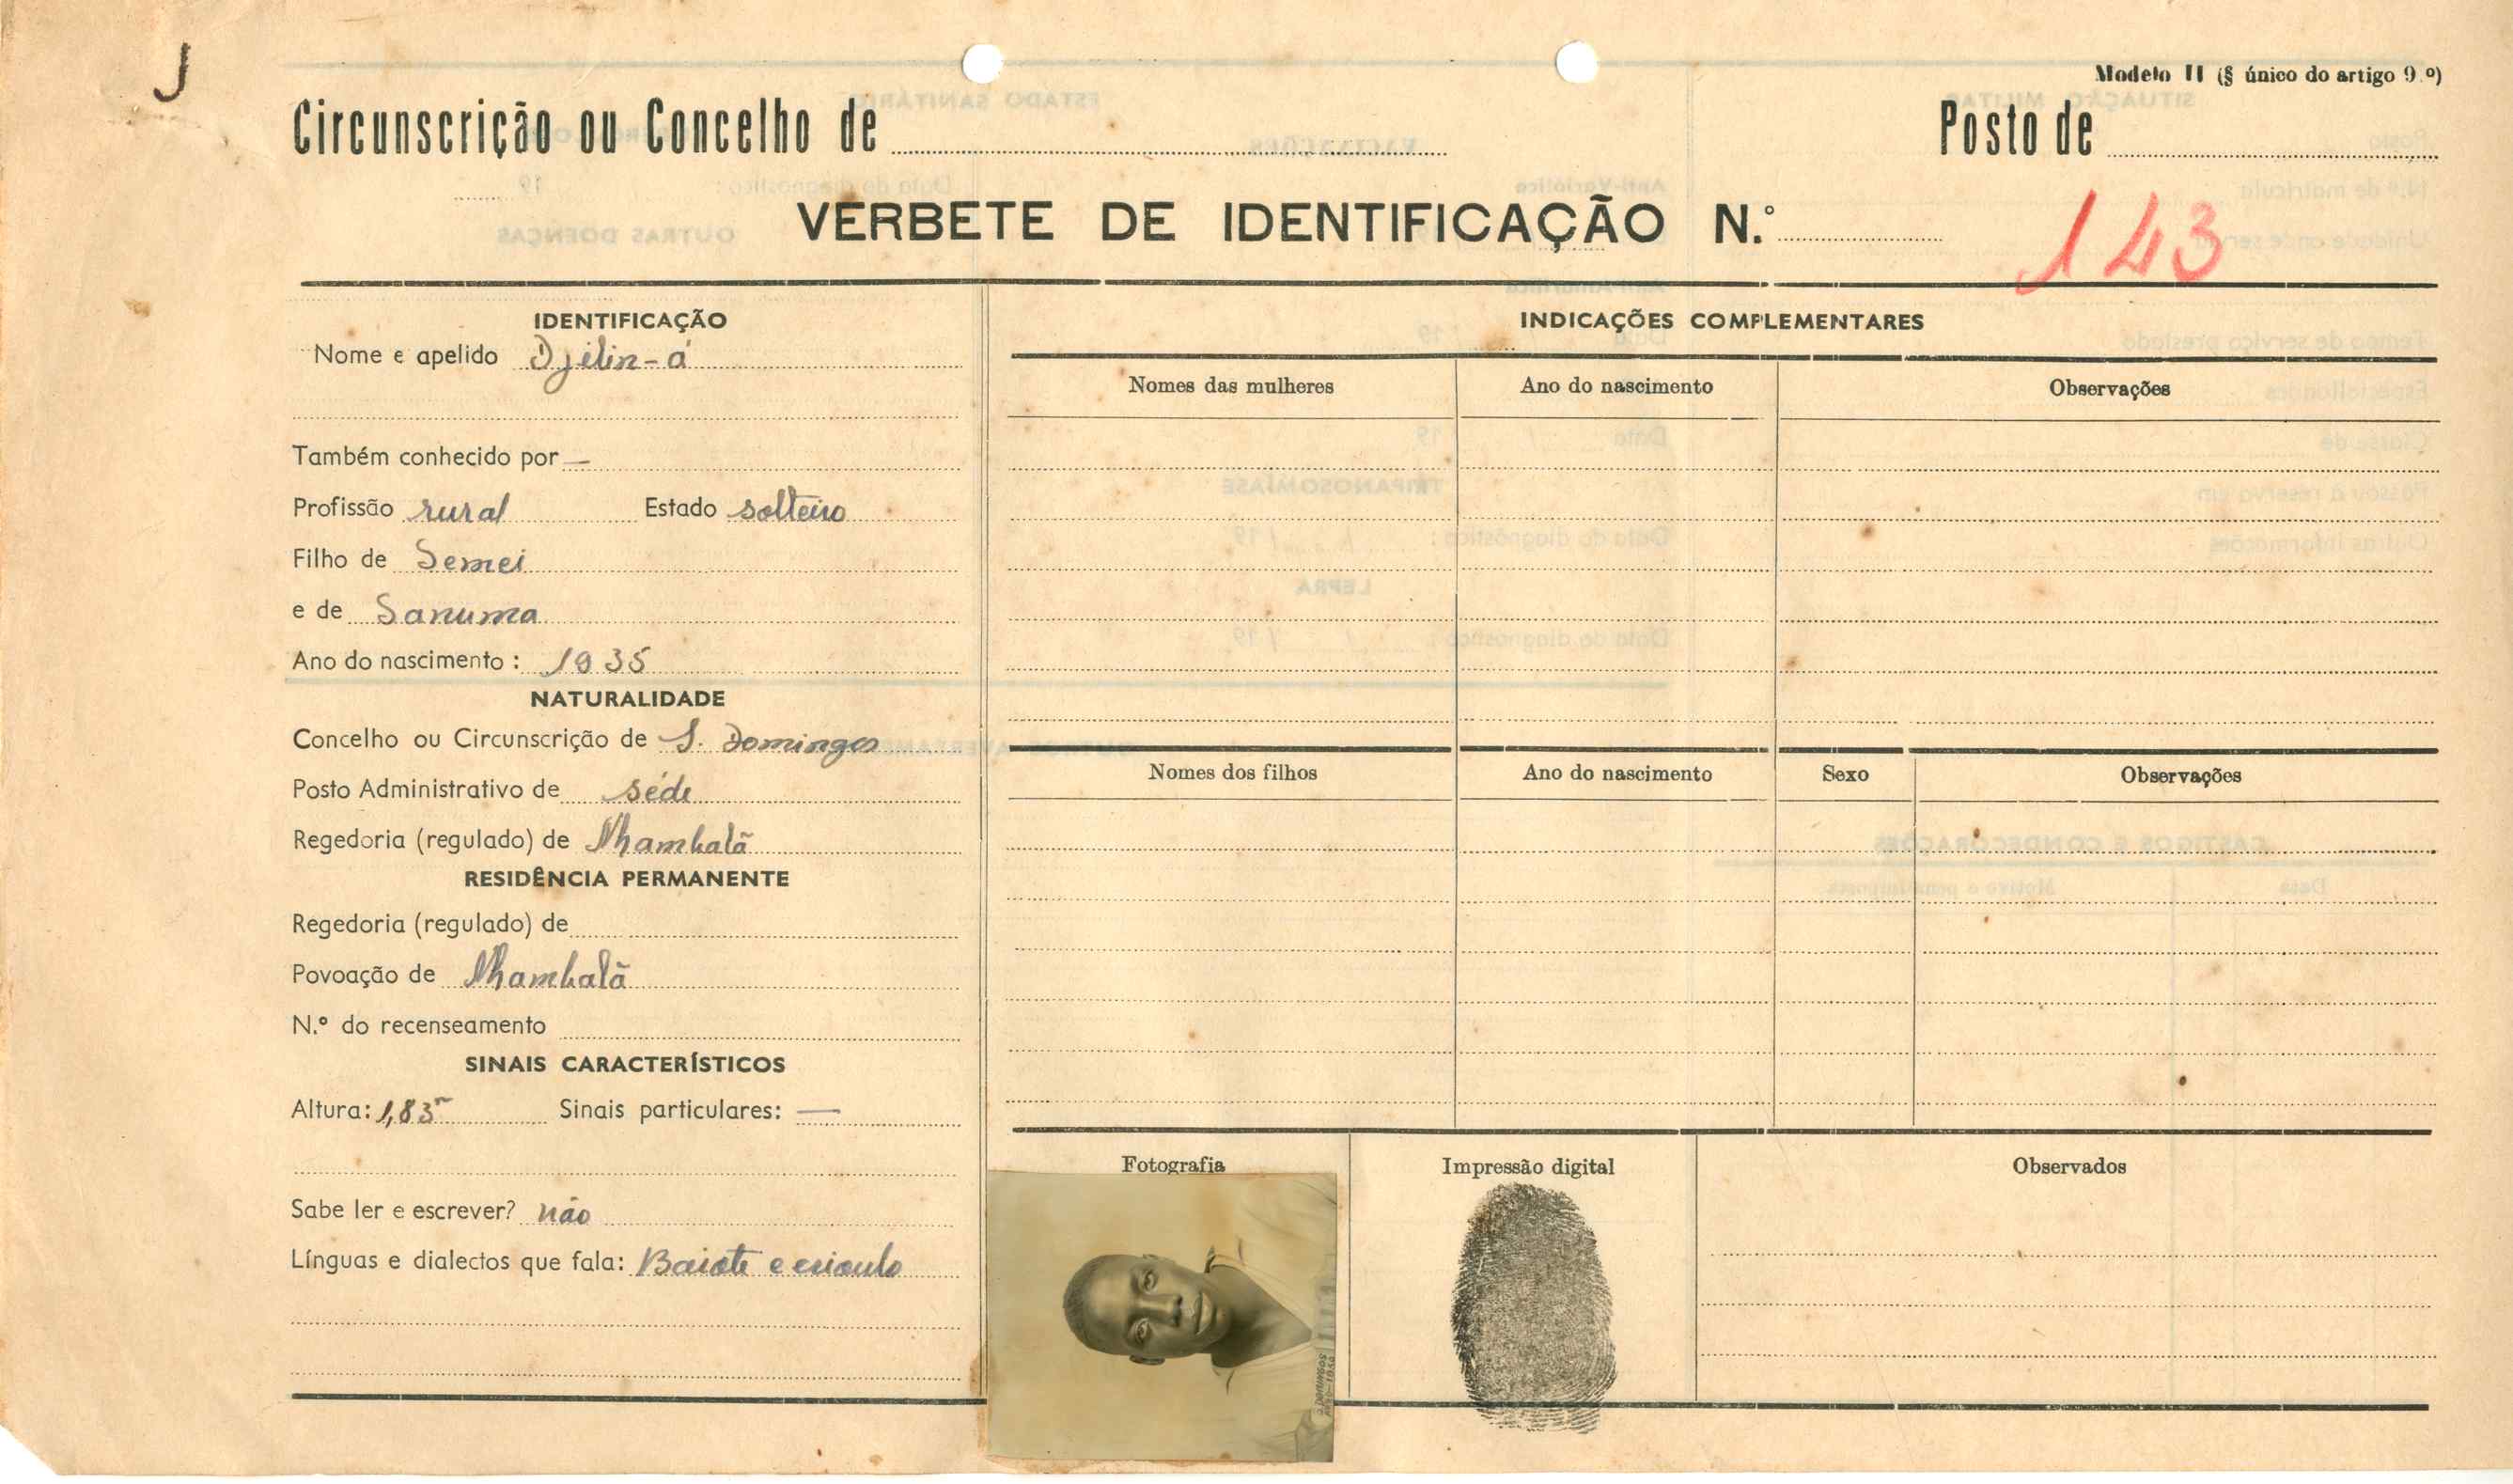 J
Modelo II (§ único do artigo 9.º)
Circunscrição ou Concelho de
Posto de
VERBETE DE IDENTIFICAÇÃO N.º
143
IDENTIFICAÇÃO
Nome e apelido Djilin-á
Também conhecido por —
Profissão rural Estado solteiro
Filho de Semei
e de Sanuma
Ano do nascimento : 1935
NATURALIDADE
Concelho ou Circunscrição de S. Domingos
Posto Administrativo de séde
Regedoria (regulado) de Nhambalã
RESIDÊNCIA PERMANENTE
Regedoria (regulado) de
Povoação de Nhambalã
N.º do recenseamento
SINAIS CARACTERÍSTICOS
Altura: 1,83m Sinais particulares: —
Sabe ler e escrever? não
Línguas e dialectos que fala: Baiote e crioulo
INDICAÇÕES COMPLEMENTARES
Nomes das mulheres Ano do nascimento Observações
Nomes dos filhos Ano do nascimento Sexo Observações
Fotografia Impressão digital Observados